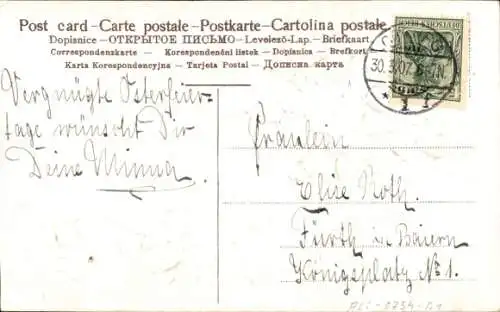 Post card - Carte postale - Postkarte - Cartolina postale
Dopisnice - ОТКРЫТОЕ ПИСЬМО - Levelező-Lap. - Briefkaart
Correspondenzkarte - Korespondenční lístek - Dopisnica - Brefkort
Karta Korespondencyjna - Tarjeta Postal - Дописна карта
30.3.07
Vergnügte Osterfeier-
tage wünscht Dir
Deine Minna
Fräulein
Elise Roth.
Fürth in Baiern
Königsplatz No 1.